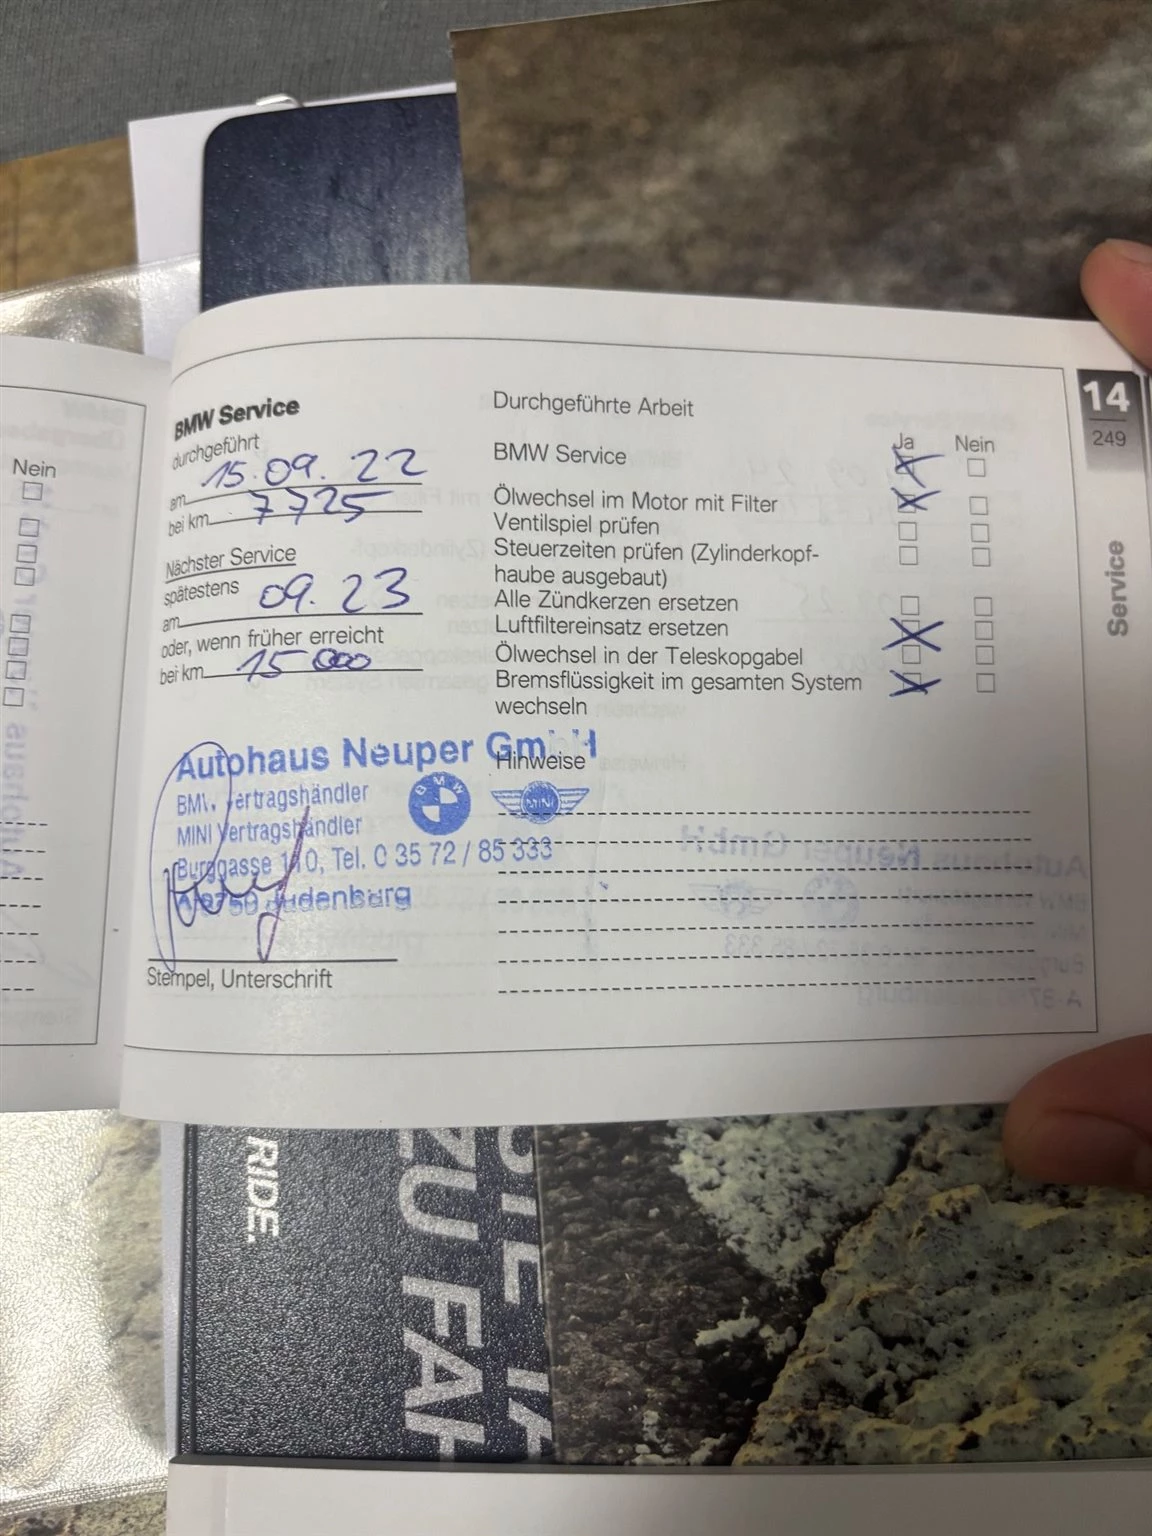 Nein
BMW Service
durchgeführt
am 15.09.22
bei km 7725
Nächster Service
spätestens
am 09.23
oder, wenn früher erreicht
bei km 15000
Autohaus Neuper GmbH
BMW Vertragshändler
MINI Vertragshändler
Burggasse 110, Tel. 0 35 72 / 85 333
A-8750 Judenburg
BMW
MINI
Stempel, Unterschrift
Durchgeführte Arbeit
Ja Nein
BMW Service
Ölwechsel im Motor mit Filter
Ventilspiel prüfen
Steuerzeiten prüfen (Zylinderkopf-
haube ausgebaut)
Alle Zündkerzen ersetzen
Luftfiltereinsatz ersetzen
Ölwechsel in der Teleskopgabel
Bremsflüssigkeit im gesamten System
wechseln
Hinweise
14
249
Service
RIDE.
ZU FAH